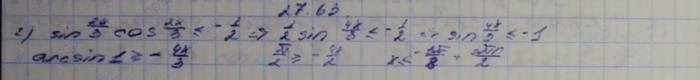 27.63
2) sin 2x/3 cos 2x/3 ≤ -1/2 ⇒ 1/2 sin 4x/3 ≤ -1/2 ⇒ sin 4x/3 ≤ -1
arcsin 1 ≥ -4x/3 π/2 ≥ -4x/3 x ≤